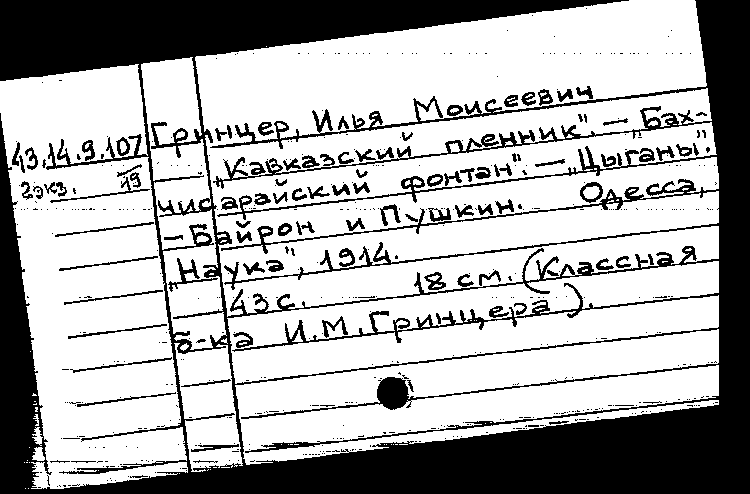 Гринцер, Илья Моисеевич
43.14.9.107
2 экз. 19
„Кавказский пленник". — „Бах-
чисарайский фонтан". — „Цыганы".
— Байрон и Пушкин. Одесса,
„Наука", 1914.
43 с. 18 см. (Классная
б-ка И.М.Гринцера).